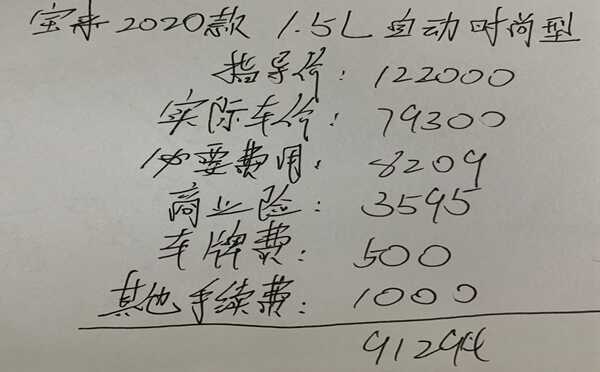 宝来2020款 1.5L 自动时尚型
指导价: 122000
实际车价: 79300
必要费用: 8209
商业险: 3595
车牌费: 500
其他手续费: 1000
91294